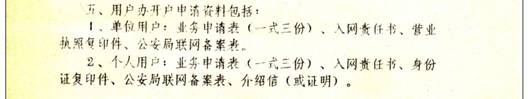 五、用户办开户申请资料包括：
1、单位用户：业务申请表（一式三份）、入网责任书、营业
执照复印件、公安局联网备案表。
2、个人用户：业务申请表（一式三份）、入网责任书、身份
证复印件、公安局联网备案表、介绍信（或证明）。